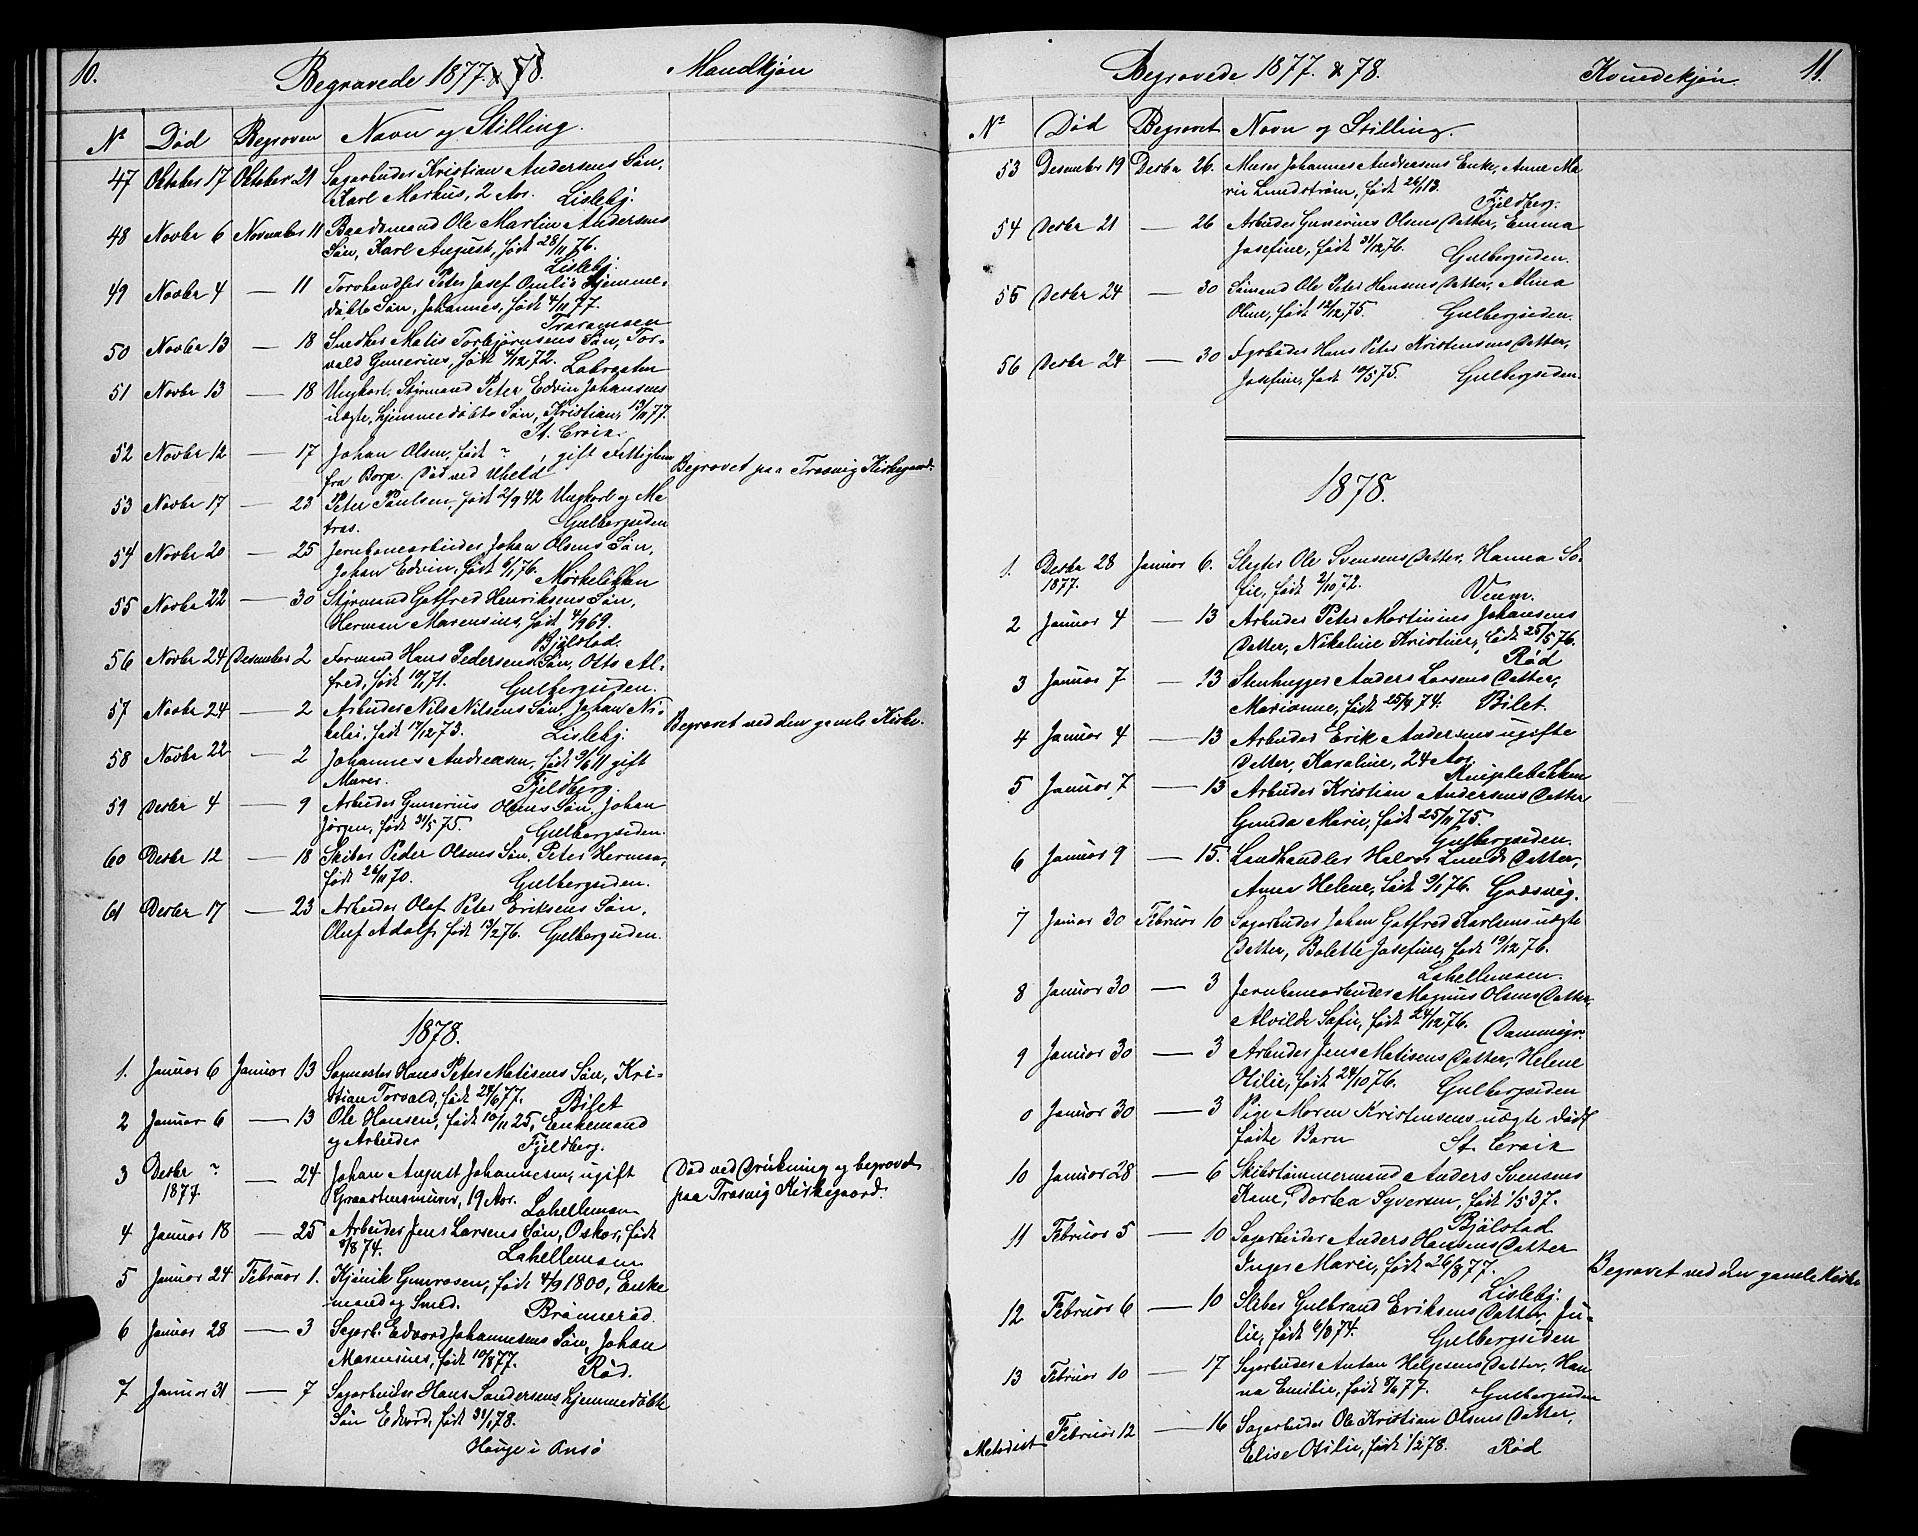 10.
Begravede 1877 & 78.
Mandkjøn
No Død Begraven Navn og Stilling.
47 Oktober 17 Oktober 21 Sagarbeider Kristian Andersens Søn,
Karl Markus, 2 Aar. Lisleby.
48 Novbr 6 November 11 Baadsmand Ole Martin Andersens
Søn, Karl August, født 28/11 76.
Lisleby.
49 Novbr 4 — 11 Torvhandler Peter Josef Hjemme-
døbte Søn, Johannes, født 4/11 77.
Traramoen
50 Novbr 13 — 18 Snedker Matis Torbjørnsens Søn, Tor-
vald Gunerius, født 4/12 72. Lahrgaten
51 Novbr 13 — 18 Ungkarl, Styrmand Peter Edvin Johansens
uægte, hjemmedøbte Søn, Kristian, 13/11 77.
St. Croix.
52 Novbr 12 — 17 Johan Olsen, født ? , gift Fattiglem
fra Borge. Død ved Uheld Begravet paa Trosvig Kirkegaard.
53 Novbr 17 — 23 Peter Paulsen, født 2/9 42 Ungkarl og Ma-
tros. Gulbergsiden
54 Novbr 20 — 25 Jernbanearbeider Johan Olsens Søn,
Johan Edvin, født 6/1 76. Mørkelikken
55 Novbr 22 — 30 Styrmand Gotfred Henriksens Søn,
Herman Marensius, født 4/9 69.
Bjølstad.
56 Novbr 24 Desember 2 Formand Hans Pedersens Søn, Otto Al-
fred, født 10/1 71. Gulbergsiden.
57 Novbr 24 — 2 Arbeider Nils Nilsens Søn, Johan Ni-
kolai, født 17/12 73. Lisleby. Begravet ved den gamle Kirke.
58 Novbr 22 — 2 Johannes Andreasen, født 9/6 11 gift
Murer. Fjeldberg.
59 Desbr 4 — 9 Arbeider Gunerius Olsens Søn, Johan
Jørgen, født 31/5 75. Gulbergsiden.
60 Desbr 12 — 18 Skiber Peder Olsens Søn, Peter Herman,
født 26/11 70. Gulbergsiden.
61 Desbr 17 — 23 Arbeider Olef Peter Eriksens Søn,
Oluf Adolf, født 13/2 76. Gulbergsiden.
1878.
1. Januar 6 Januar 13 Sagmester Hans Peter Matisens Søn, Kri-
stian Torvald, født 24/6 77. Bilet
2 Januar 6 — 13 Ole Hansen, født 10/11 25, Enkemand
og Arbeider Fjeldberg.
3 Desbr ? 1877 — 24 Johan August Johannesen, ugift
Graastensmurer, 19 Aar. Lahellemoen Død ved Drukning og begravet
paa Trosvig Kirkegaard.
4 Januar 18 — 25 Arbeider Jens Larsens Søn, Oskar, født
8/8 74. Lahellemoen
5 Januar 24 Februar 1. Kjønik Gunrosen, født 4/9 1800, Enke-
mand og Smed. Brønnerød.
6 Januar 28 — 3 Sagarb. Edvard Johannesens Søn, Johan
Marensius, født 10/8 77. Rød.
7 Januar 31 — 7 Sagarbeider Hans Sandersens hjemmedøbte
Søn Edvard, født 31/1 78.
Hauge i Onsø
Begravede 1877 & 78.
Kvindekjøn.
11.
No Død Begravet Navn og Stilling.
53 Desember 19 Desbr 26. Murer Johannes Andersens Enke, Anne Ma-
rie Lundstrøm, født 26/1 13.
Fjeldberg.
54 Desbr 21 — 26 Arbeider Gunerius Olsens Datter, Emma
Josefine, født 31/12 76. Gulbergsiden.
55 Desbr 24 — 30 Sømand Ole Peter Hansens Datter, Alma
Oline, født 12/12 75. Gulbergsiden.
56 Desbr 24 — 30 Fyrbøder Hans Peter Kristensens Datter,
Josefine, født 10/5 75. Gulbergsiden.
1878.
1. Desbr 28 1877. Januar 6. Slagter Ole Svensens Datter, Hanna So-
fie, født 2/10 72. Veum.
2 Januar 4 — 13 Arbeider Peter Martinius Johansens
Datter, Nikoline Kristine, født 25/5 76.
Rød
3 Januar 7 — 13 Stenhugger Anders Larsens Datter,
Marianne, født 25/9 74. Bilet.
4 Januar 4 — 13 Arbeider Erik Andersens ugifte
Datter, Karoline, 24 Aar.
Kniplebakken
5 Januar 7 — 13 Arbeider Kristian Andersens Datter
Gunda Marie, født 25/11 75.
Gulbergsiden.
6 Januar 9 — 15. Landhandler Halvor Lunds Datter,
Anna Helene, født 9/1 76. Gaasvig.
7 Januar 30 Februar 10 Sagarbeider Johan Gotfred Karlsens uægte
Datter, Bolette Josefine, født 19/12 76.
Lahellemoen.
8 Januar 30 — 3 Jernbanearbeider Magnus Olsens Datter,
Alvilde Sofie, født 24/12 76. Dammyr.
9 Januar 30 — 3 Arbeider Jens Matisens Datter, Helene
Otilie, født 24/10 76. Gulbergsiden
0 Januar 30 — 3 Pige Maren Kristensens uægte død-
fødte Barn St. Croix
10 Januar 28 — 6 Skibstømmermand Anders Svensens
Kone, Dortea Syversen, født 1/5 37.
Bjølstad
11 Februar 5 — 10 Sagarbeider Anders Hansens Datter
Inger Marie, født 26/8 77. Begravet ved den gamle Kirke
Lisleby.
12 Februar 6 — 10 Sliber Gulbrand Eriksens Datter, Ju-
lie, født 6/8 74. Gulbergsiden
13 Februar 10 — 17 Sagarbeider Anton Helgesens Datter, Han-
na Emilie, født 8/6 77. Gulbergsiden
Metodist Februar 12 — 16 Sagarbeider Ole Kristian Olsens Datter,
Elise Otilie, født 1/2 78. Rød